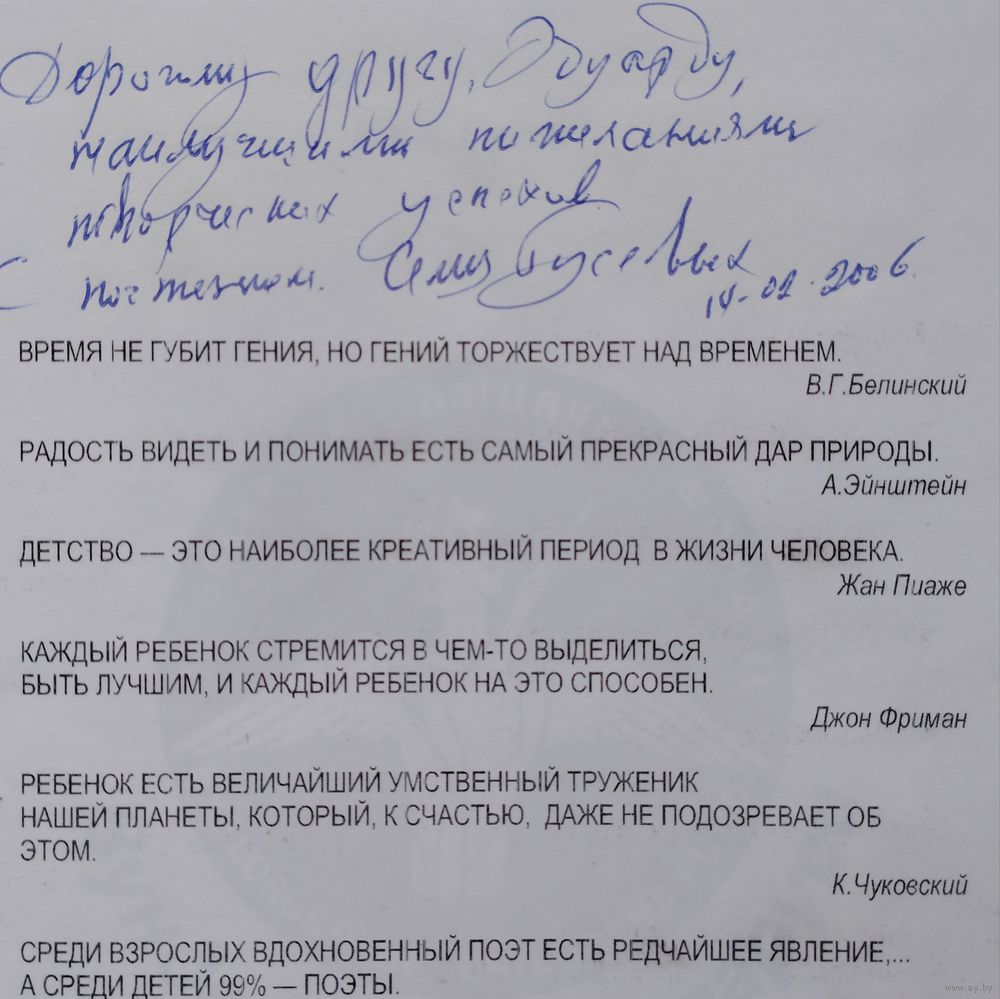 Дорогому другу, Эдуарду,
наилучшими пожеланиями
творческих успехов
С почтением. Семья Гусевых
14-02-2006
ВРЕМЯ НЕ ГУБИТ ГЕНИЯ, НО ГЕНИЙ ТОРЖЕСТВУЕТ НАД ВРЕМЕНЕМ.
В.Г.Белинский
РАДОСТЬ ВИДЕТЬ И ПОНИМАТЬ ЕСТЬ САМЫЙ ПРЕКРАСНЫЙ ДАР ПРИРОДЫ.
А.Эйнштейн
ДЕТСТВО — ЭТО НАИБОЛЕЕ КРЕАТИВНЫЙ ПЕРИОД В ЖИЗНИ ЧЕЛОВЕКА.
Жан Пиаже
КАЖДЫЙ РЕБЕНОК СТРЕМИТСЯ В ЧЕМ-ТО ВЫДЕЛИТЬСЯ,
БЫТЬ ЛУЧШИМ, И КАЖДЫЙ РЕБЕНОК НА ЭТО СПОСОБЕН.
Джон Фриман
РЕБЕНОК ЕСТЬ ВЕЛИЧАЙШИЙ УМСТВЕННЫЙ ТРУЖЕНИК
НАШЕЙ ПЛАНЕТЫ, КОТОРЫЙ, К СЧАСТЬЮ, ДАЖЕ НЕ ПОДОЗРЕВАЕТ ОБ
ЭТОМ.
К.Чуковский
СРЕДИ ВЗРОСЛЫХ ВДОХНОВЕННЫЙ ПОЭТ ЕСТЬ РЕДЧАЙШЕЕ ЯВЛЕНИЕ,...
А СРЕДИ ДЕТЕЙ 99% — ПОЭТЫ.
www.ay.by